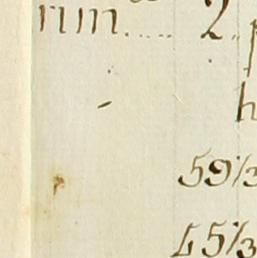 rim..... 2..
h
59⅓
45⅓